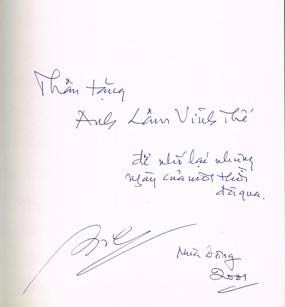 Thân tặng
Anh Lâm Vĩnh Thế
để nhớ lại những
ngày của một thời
đã qua.
Mùa Đông
2001